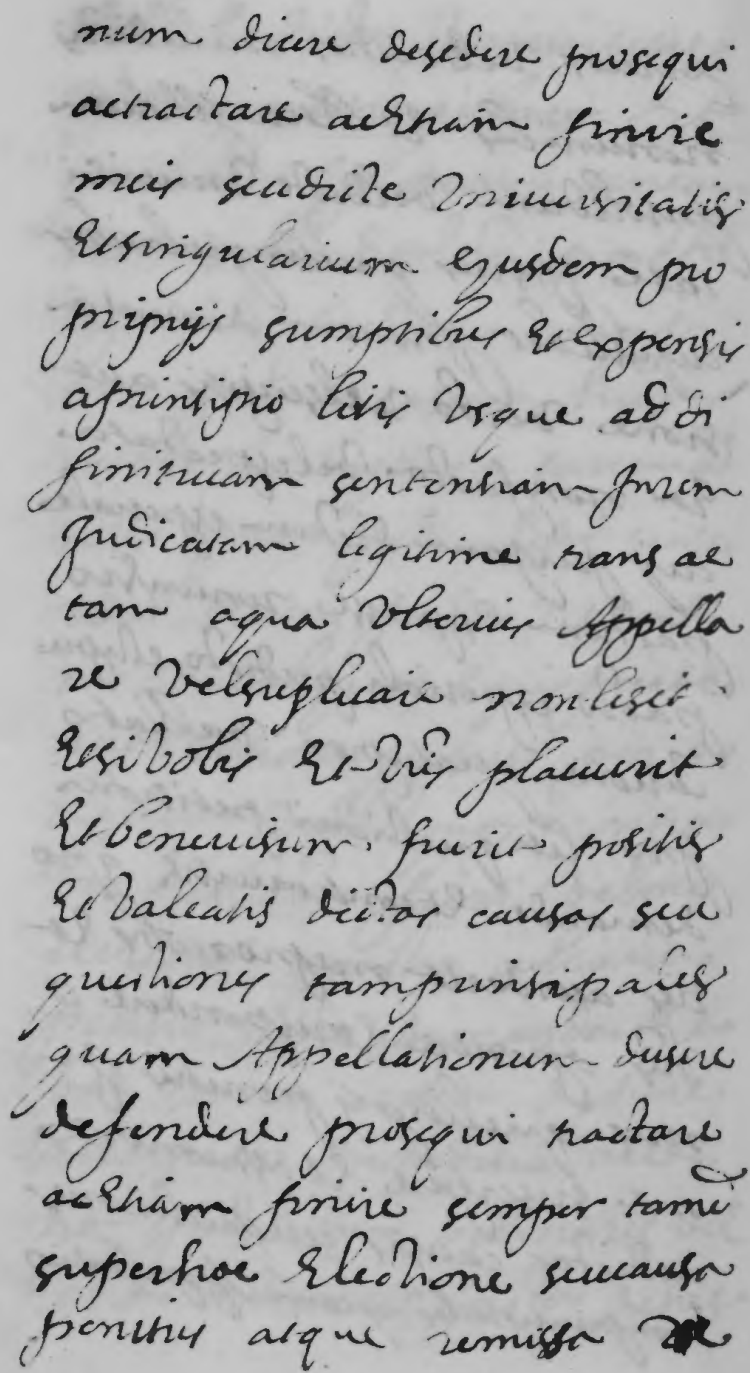 num dicere defedere prosequi
actractare acEtiam finire
meis seudicte Vniuersitatis
Etsingularium ejusdem pro
prijnijs sumptibus Et expensis
aprinsipio litis Vsque ad di
finitiuam sentensiam Jnrem
Judicatam legitime trans ac
tam aqua Vlterius Appella
re Velsuplicare non lisit
Etsi Vobis Et Vris̃ placuerit
Et beneuisum fuerit positis
Et Valeatis dictas causas seu
questiones tamprinsipales
quam Appellationum dusere
defendere prosequi tractare
acEtiam finire semper tamẽ
superhoc Electione seucausa
penitus atque remissa